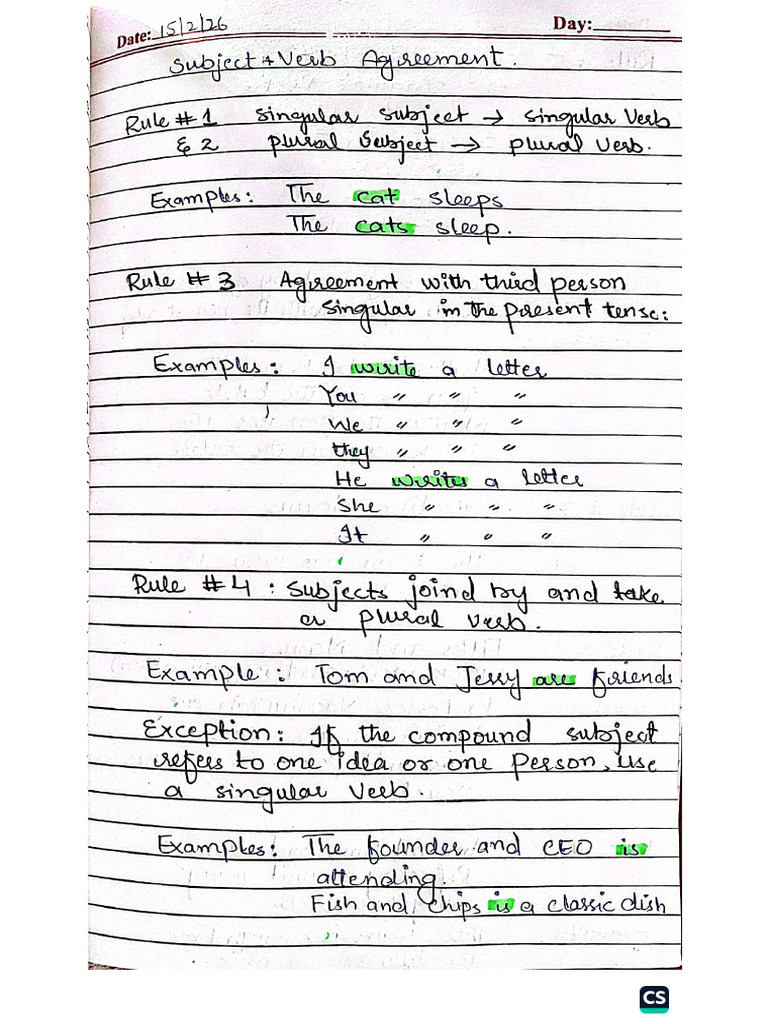 Date: 15/2/26 Day:
Subject + Verb Agreement.
Rule # 1 Singular subject → singular Verb
& 2 plural Subject → plural verb.
Examples: The cat sleeps
The cats sleep.
Rule # 3 Agreement with third person
singular in the present tense:
Examples: I write a letter
You " " "
We " " "
they " " "
He writes a letter
She " " "
It " " "
Rule # 4 : Subjects joind by and take
a plural verb.
Example : Tom and Jerry are friends
Exception: If the compound subject
refers to one idea or one person, use
a singular verb.
Examples: The founder and CEO is
attending.
Fish and chips is a classic dish
CS